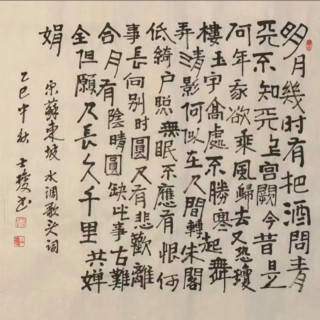 明月幾时有把酒問青
天不知天上宫阙今昔是
何年我欲乘風歸去又恐瓊
樓玉宇高處不勝寒起舞
弄清影何似在人間轉朱閣
低綺户照無眠不應有恨何
事長向别时圆人有悲歡離
合月有陰晴圆缺此事古難
全但願人長久千里共嬋
娟
宋蘇東坡水调歌头词
乙巳中秋书